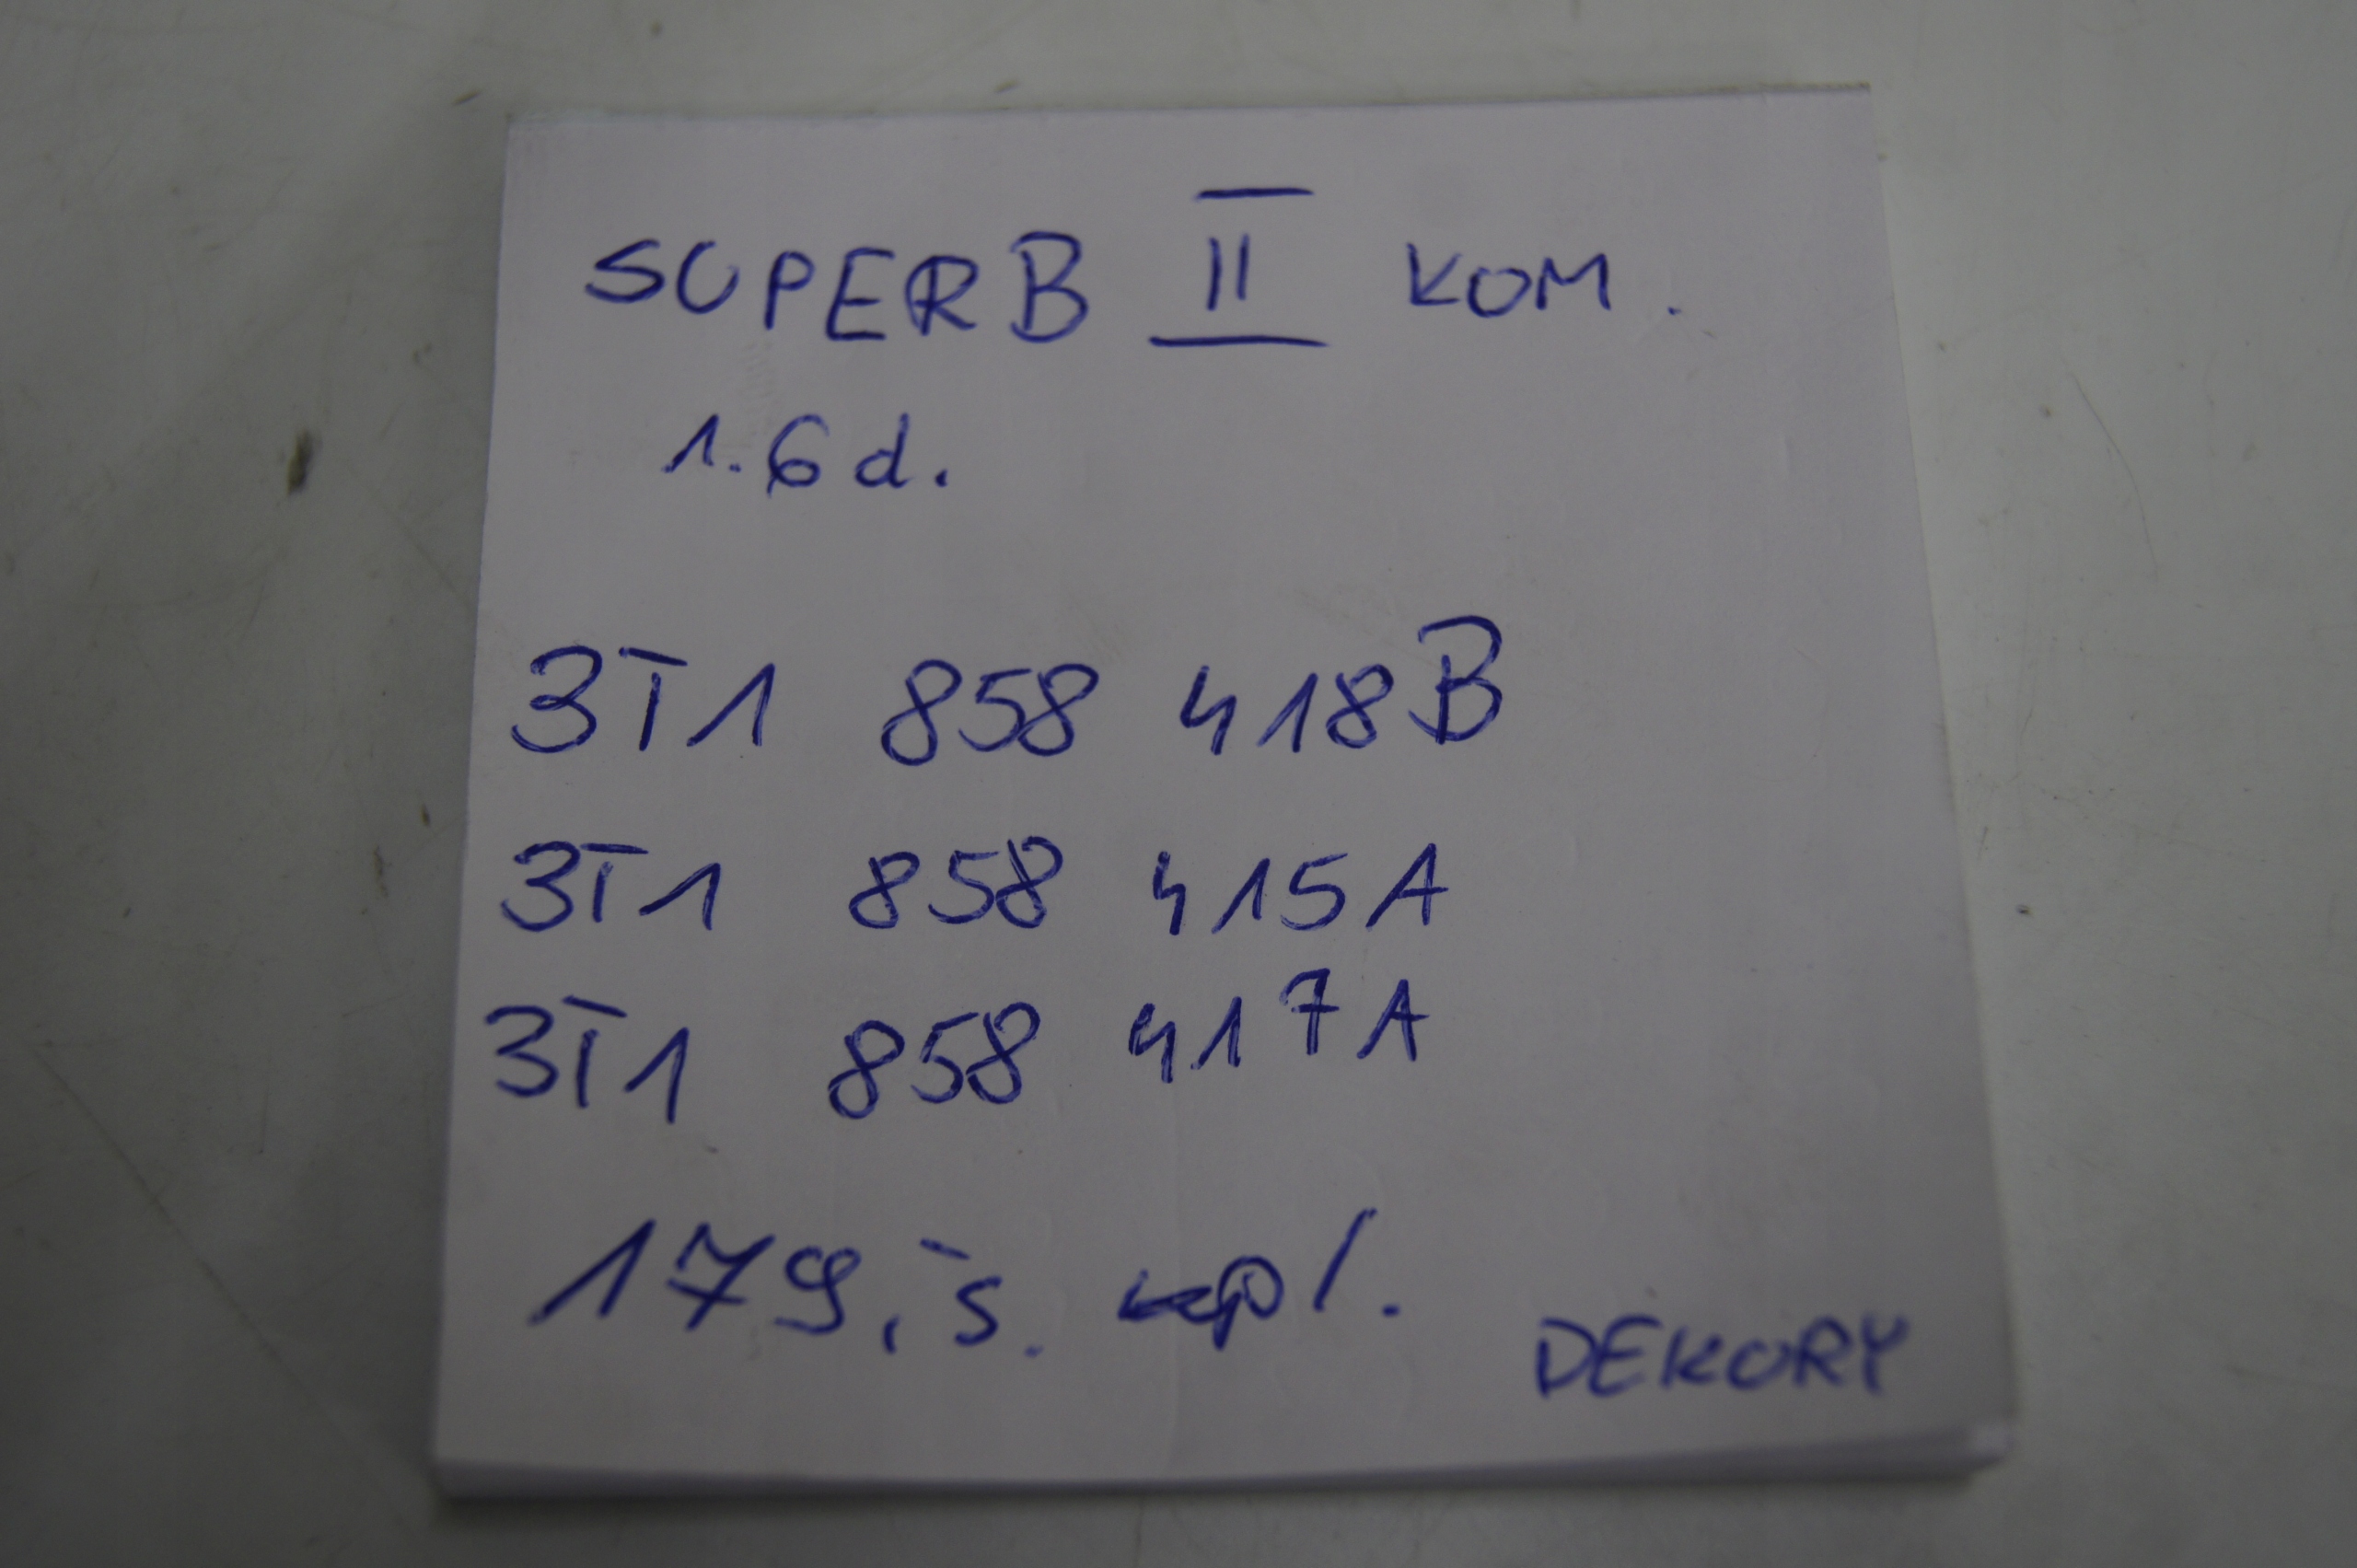 SUPERB II KOM.
1.6d.
3T1 858 418B
3T1 858 415A
3T1 858 417A
179,- s. kpl.
DEKORY